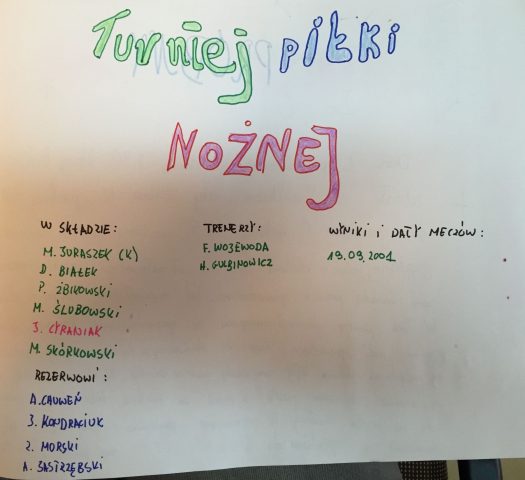 Turniej piłki
NOŻNEJ
W SKŁADZIE:
M. JURASZEK (K)
D. BIAŁEK
P. ŻBIKOWSKI
M. ŚLUBOWSKI
J. CYRANIAK
M. SKÓRKOWSKI
REZERWOWI:
A. CAUWEŃ
J. KONDRACIUK
Z. MORSKI
A. JASTRZĘBSKI
TRENERZY:
F. WOJEWODA
H. GULBINOWICZ
WYNIKI I DATY MECZÓW:
19.09.2001